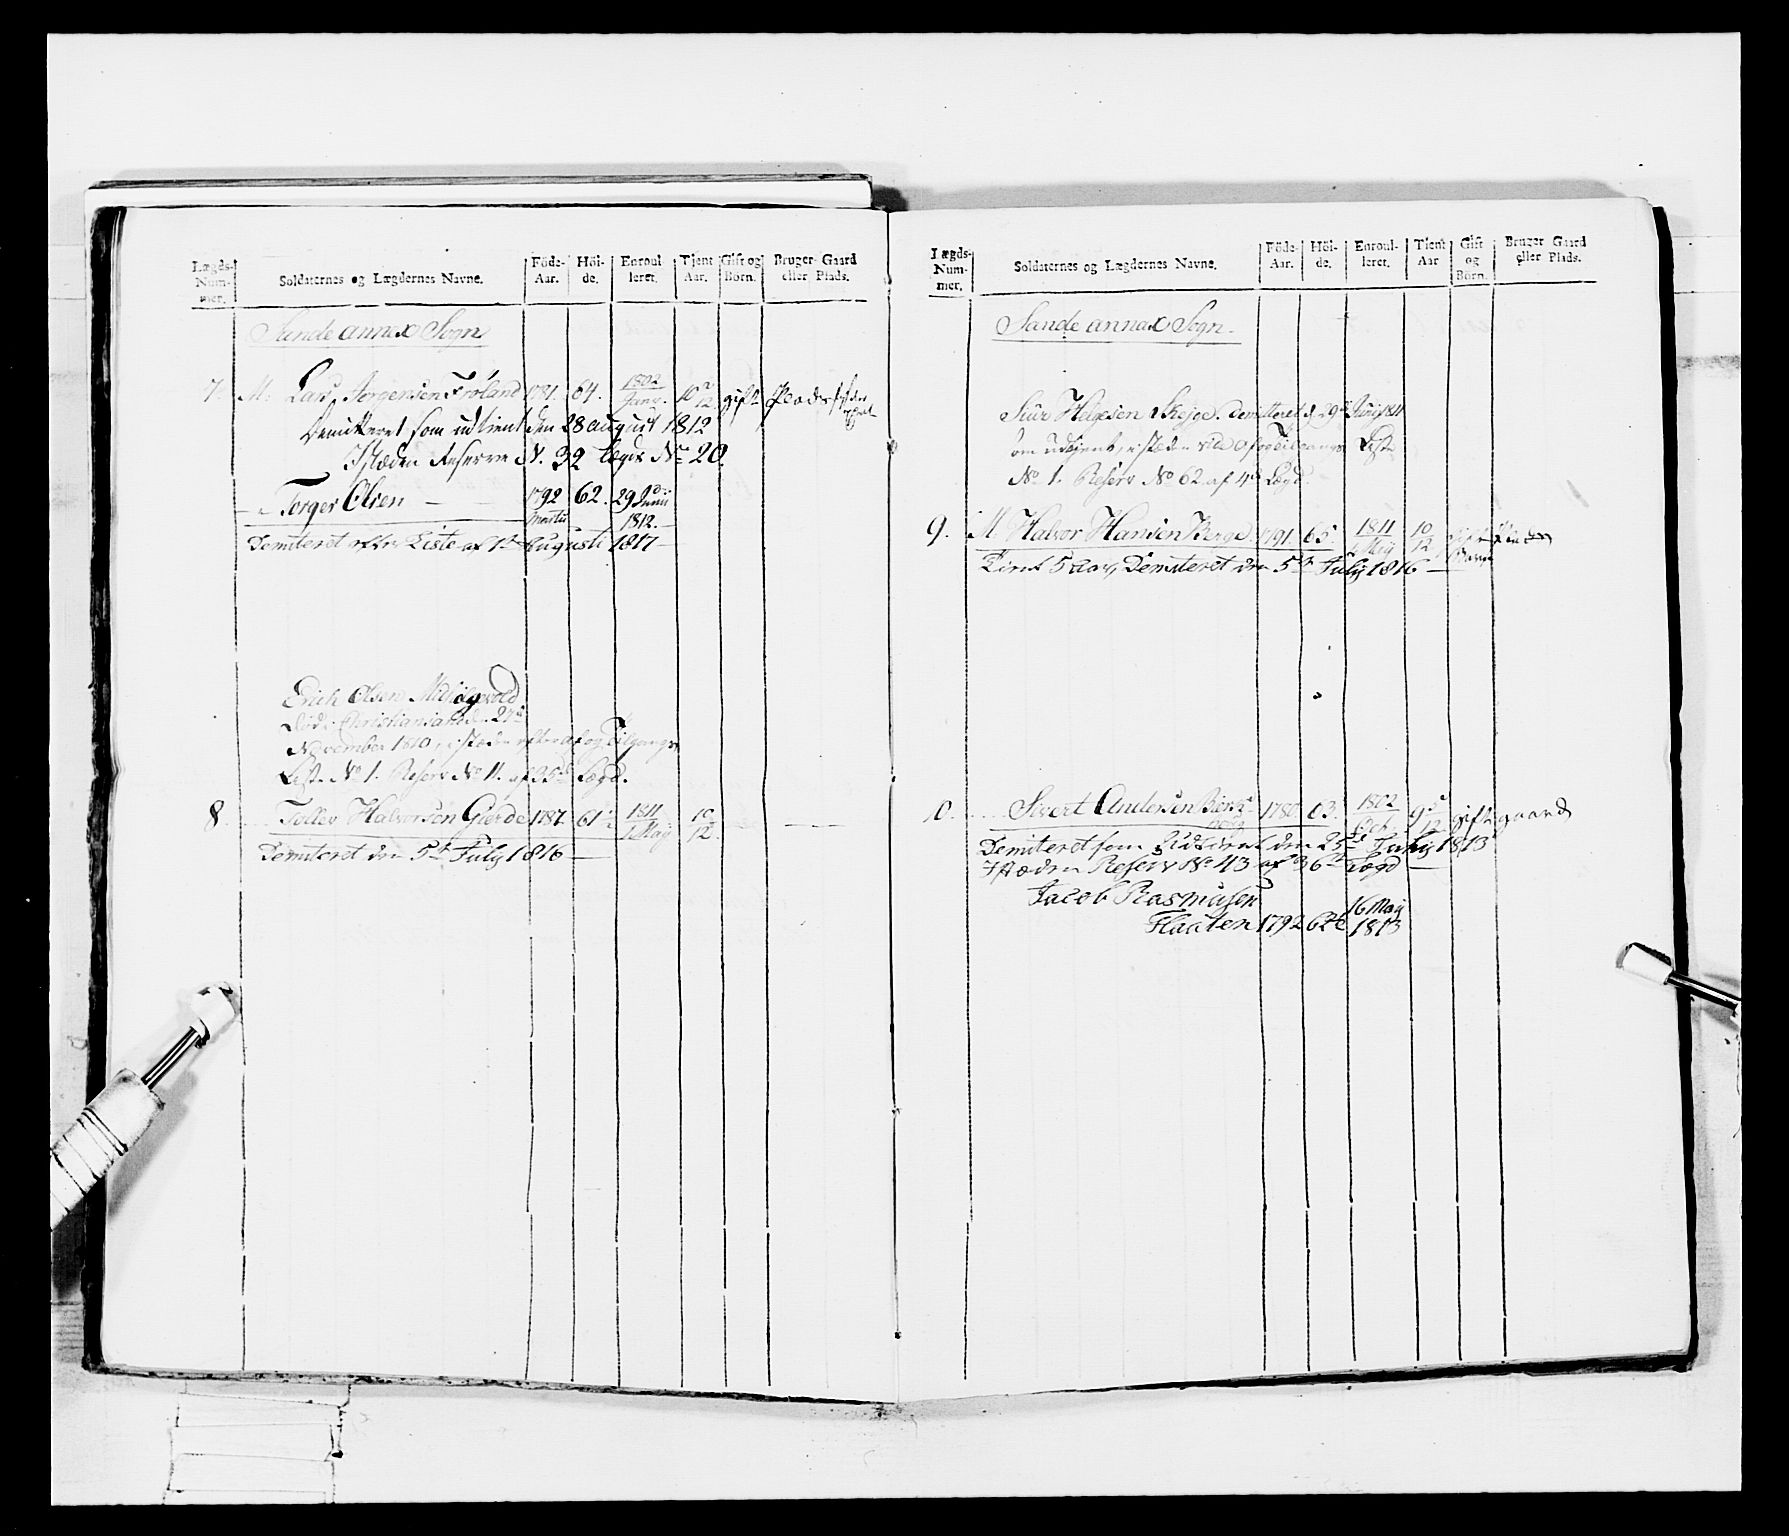 Lægds-Num-mer. Soldaternes og Lægdernes Navne. Föde-Aar. Höi-de. Enroul-leret. Tjent Aar. Gift og Börn. Bruger Gaard eller Plads.
Sande annex Sogn
7. M: Lars Jørgensen Frøland 1781. 64. 1802 Janr. 10 12 gift Plads
Demitteret som udtient den 28 august 1812
I stæden Reserve N. 32 Lægd No 20.
Torger Olsen 1792 62. 29 Junii 1812.
Demiteret efter Liste af 1te Augusti 1817
Erich Olsen
død i Christiansand d. 27de
November 1810, i stæden efter af og Tilgangs
Liste No 1. Reserv No 11. af 35te Lægd.
8. Tollev Halvorsen Gierde 1787. 61 1811 1 May 10 12.
Demiteret den 5te July 1816
Lægds-Num-mer. Soldaternes og Lægdernes Navne. Föde-Aar. Höi-de. Enroul-leret. Tient Aar Gift og Börn. Bruger Gaard eller Plads.
Sande annex Sogn.
Siur Helgesen Skeje. demitteret d. 29de Junij 1811
om udtjent, i stæden vide af og Tilgangs Liste
No 1. Reserv No 62 af 4de Lægd.
9. M. Halvor Hansen Berge. 1791. 65. 1811 May 10 12
Tient 5 aar, Demiteret den 5te July 1816
10. Sivert Andersen 1780. 63. 1802 9 12 gift gaard
Demiteret som Udtient den 25de July 1813
I stæden Reserv No 43 af 36te Lægd
Jacob Rasmusen
Flaaten 1792 62 16 May 1813